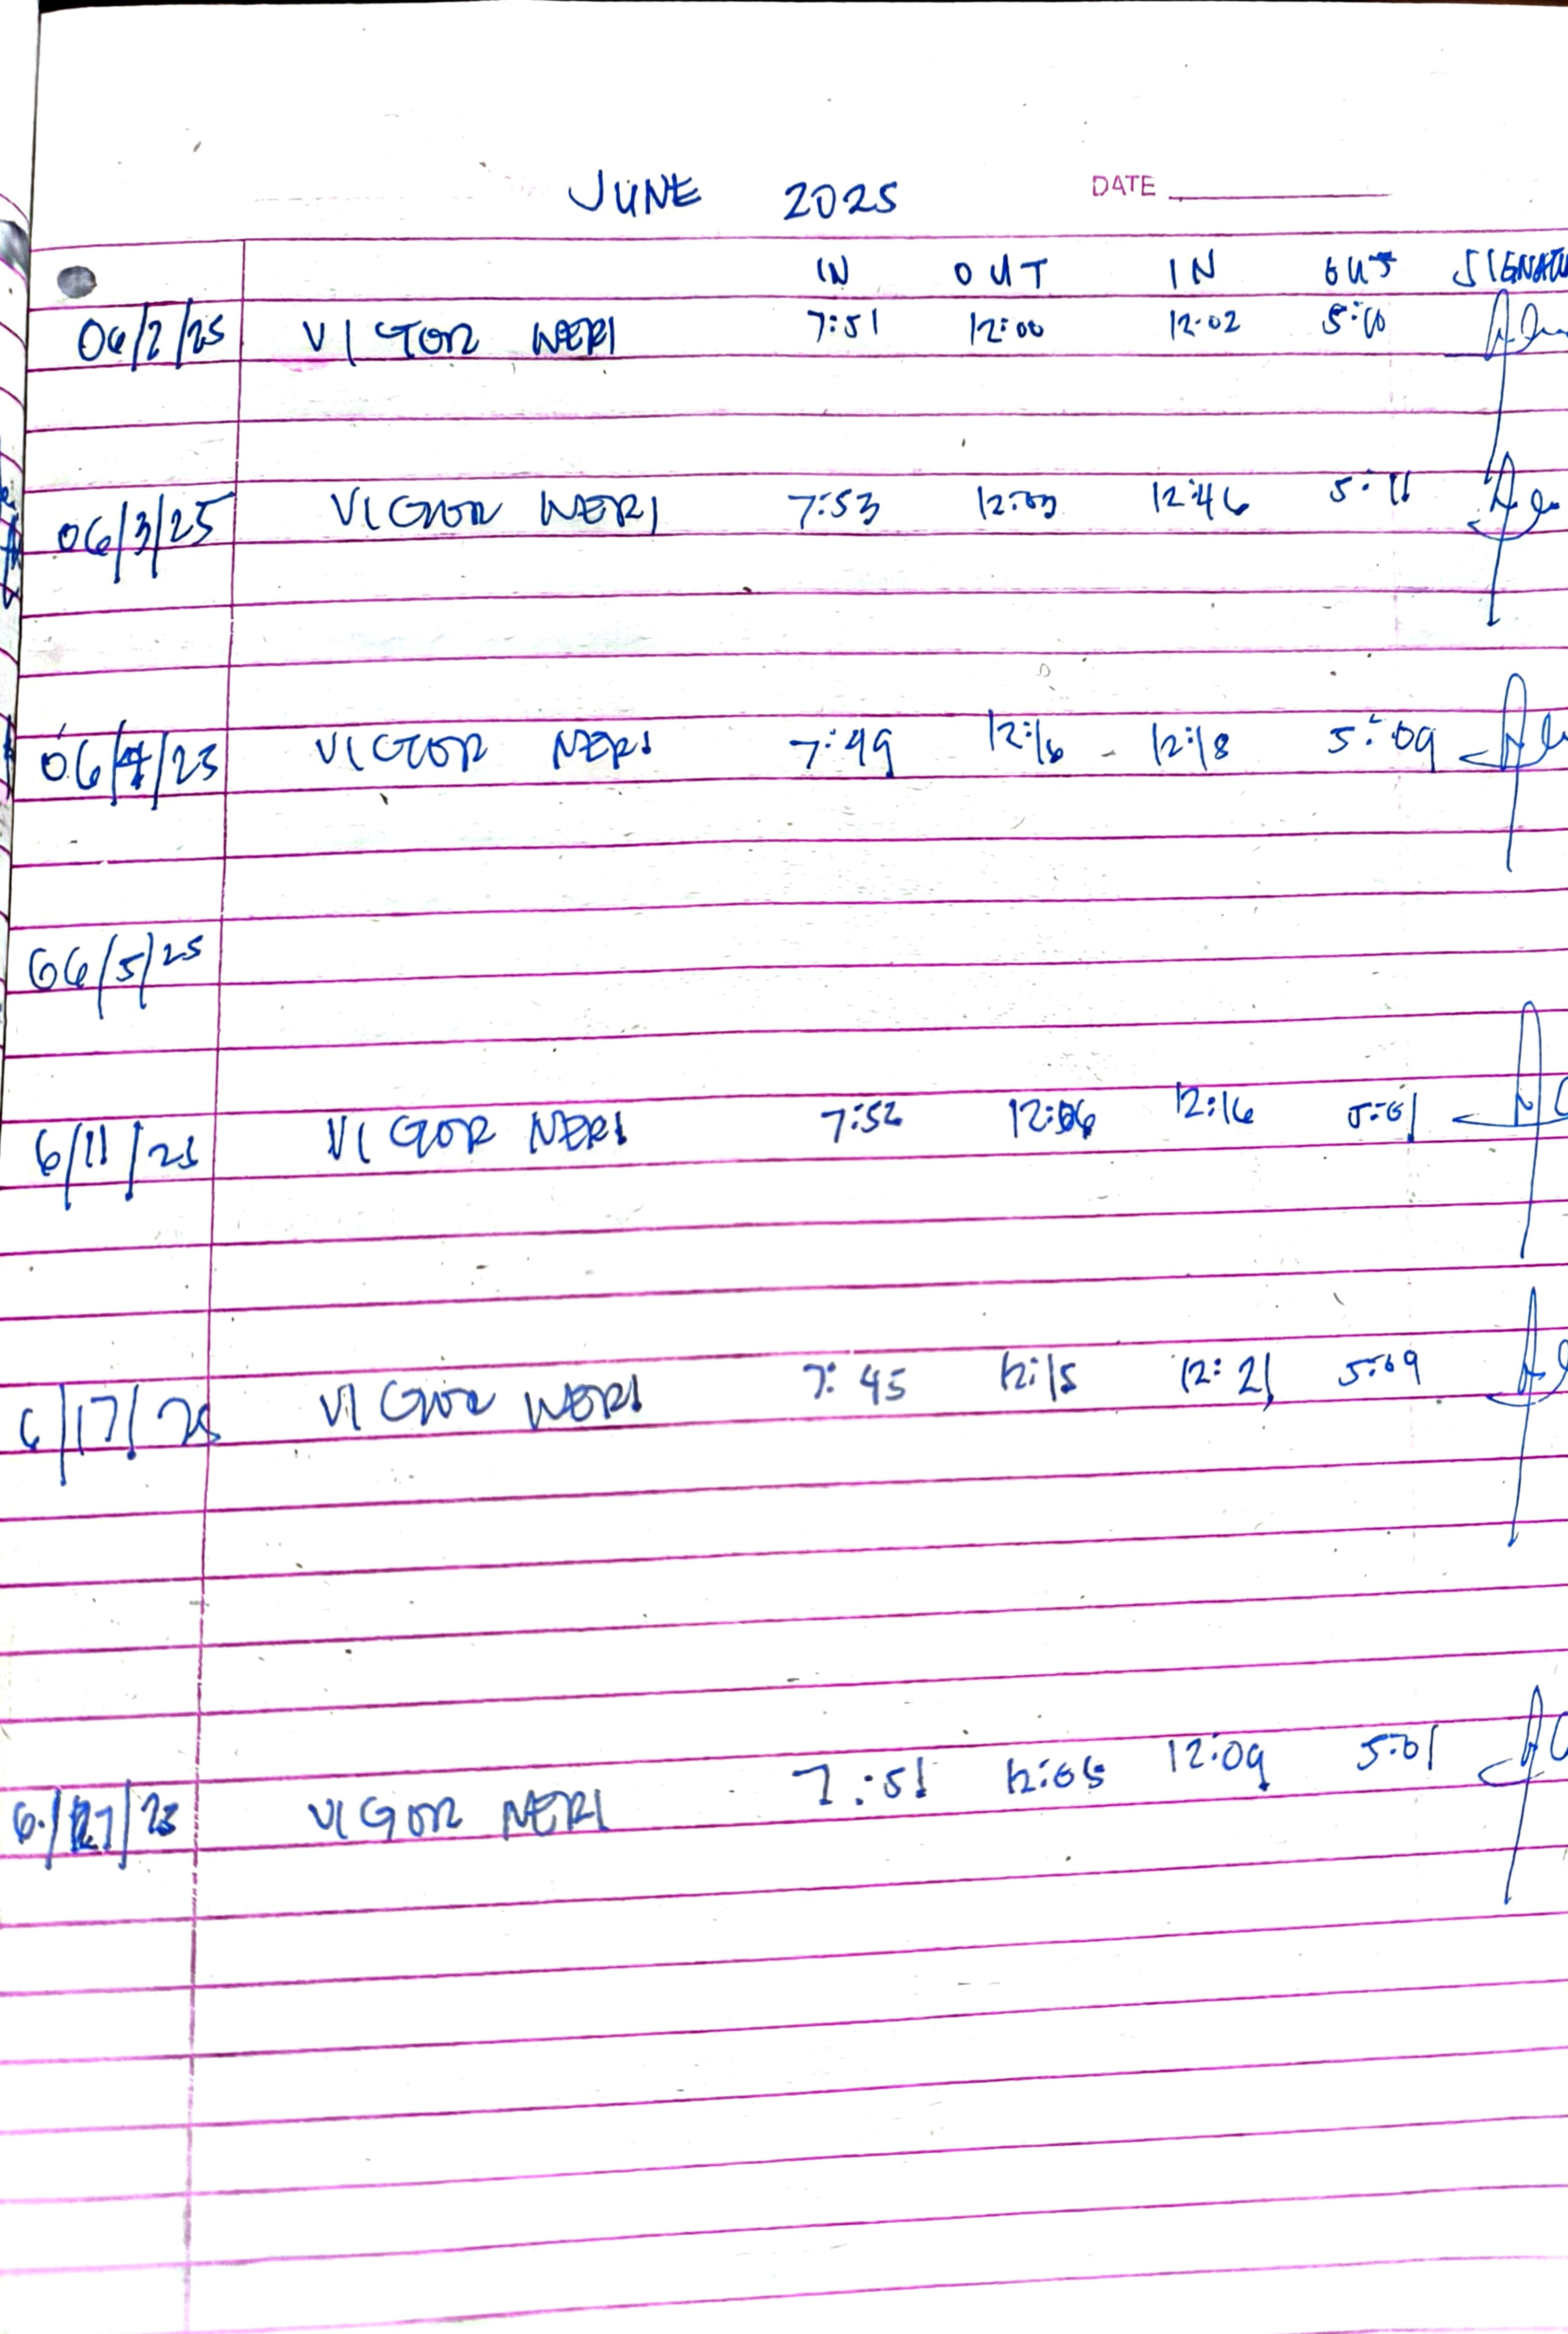 JUNE 2025 DATE
IN OUT IN OUT SIGNATU
06/2/25 VICTOR NERI 7:51 12:00 12:02 5:10
06/3/25 VICTOR NERI 7:53 12:46 5:11
06/4/25 VICTOR NERI 7:49 12:16 12:18 5:09
06/5/25
6/11/25 VICTOR NERI 7:52 12:06 12:16 5:01
6/17/25 VICTOR NERI 7:45 12:15 12:21 5:09
6/27/25 VICTOR NERI 7:51 12:05 12:09 5:01